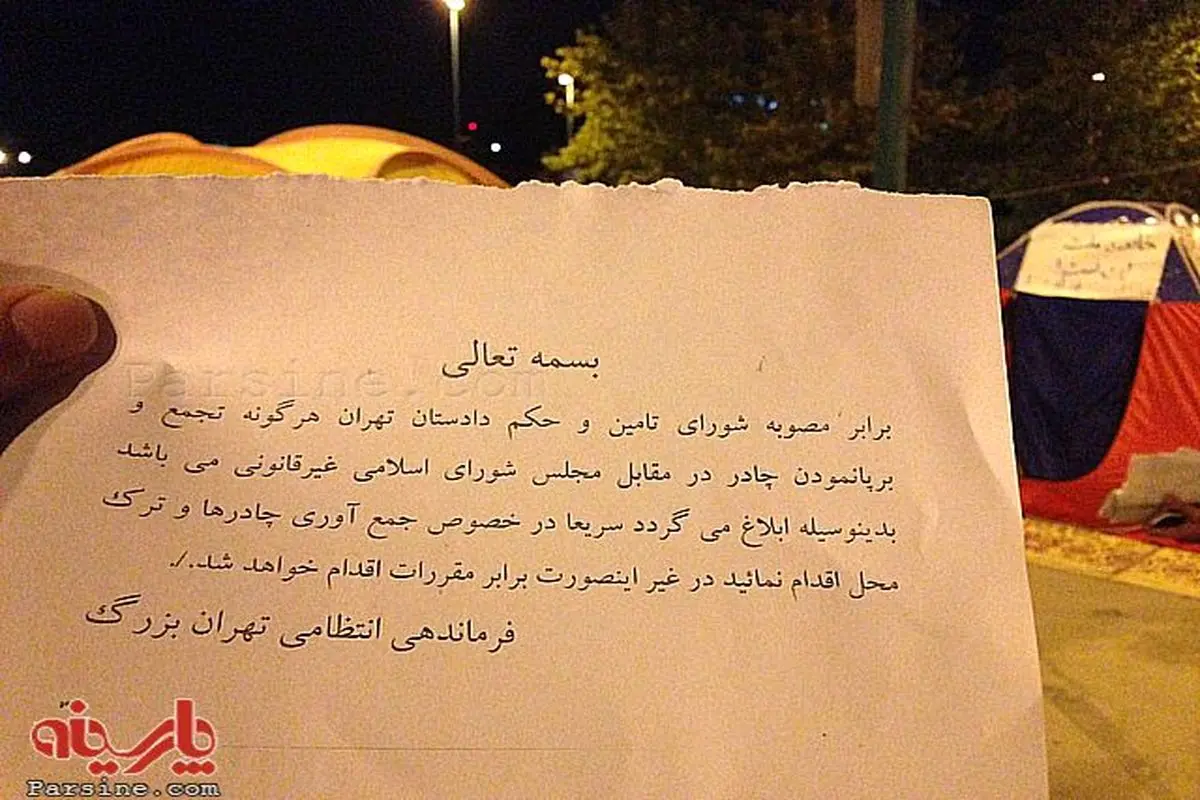 بسمه تعالی
برابر مصوبه شورای تامین و حکم دادستان تهران هرگونه تجمع و
برپانمودن چادر در مقابل مجلس شورای اسلامی غیرقانونی می باشد
بدینوسیله ابلاغ می گردد سریعا در خصوص جمع آوری چادرها و ترک
محل اقدام نمائید در غیر اینصورت برابر مقررات اقدام خواهد شد./.
فرماندهی انتظامی تهران بزرگ
Parsine.com
پارسینه
Parsine.com